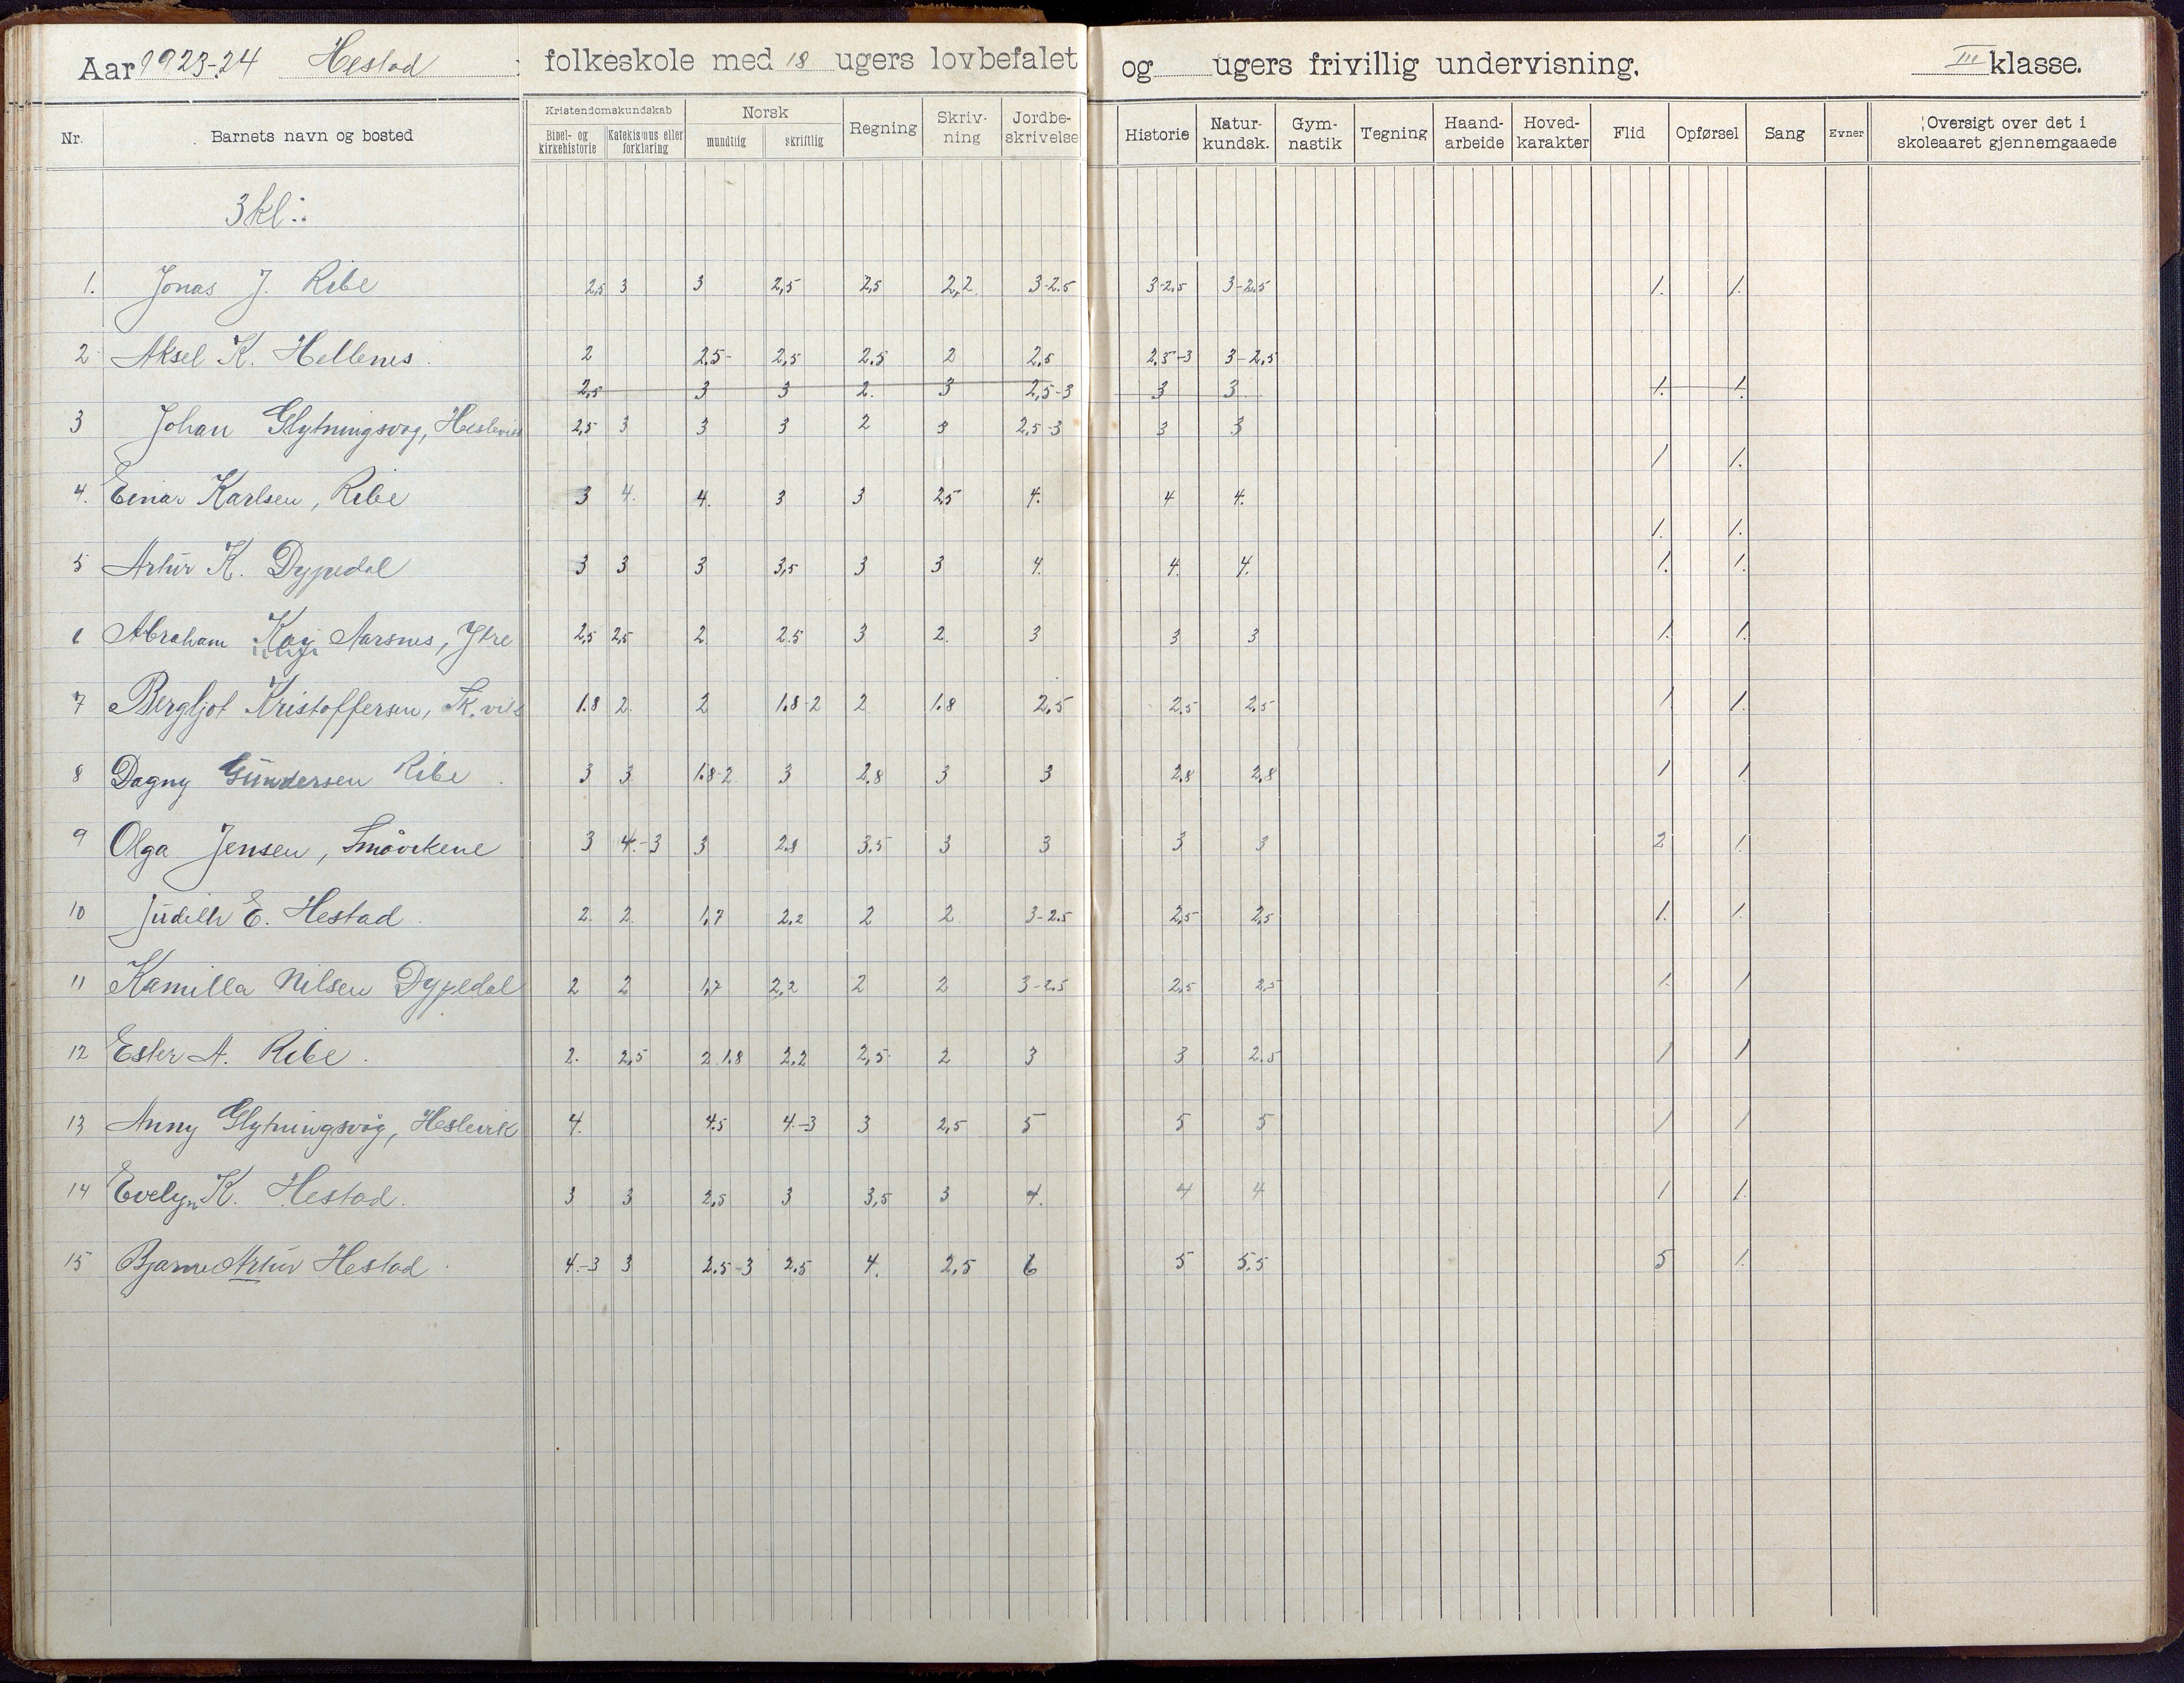 Aar 1923-24 Hestad folkeskole med 18 ugers lovbefalet og ugers frivillig undervisning. III klasse.
Nr. Barnets navn og bosted Kristendomskundskab Bibel- og kirkehistorie Katekismus eller forklaring Norsk mundtlig skriftlig Regning Skriv-ning Jordbe-skrivelse Historie Natur-kundsk. Gym-nastik Tegning Haand-arbeide Hoved-karakter Flid Opførsel Sang Evner Oversigt over det i skoleaaret gjennemgaaede
3 kl:.
1. Jonas J. Ribe 2,5 3 3 2,5 2,5 2,2 3-2.5 3-2,5 3-2.5 1. 1.
2 Aksel K. Hellenes 2 2.5- 2,5 2.5 2 2,5 2.5-3 3-2,5
2,5 3 3 2. 3 2,5-3 3 3 1. 1.
3 Johan Glytningsvog, 2,5 3 3 3 2 3 2,5-3 3 3
1 1.
4. Einar Karlsen, Ribe 3 4. 4. 3 3 2,5 4. 4 4.
1. 1.
5 Artur K. Dypedal 3 3 3 3,5 3 3 4. 4. 4. 1. 1.
6 Abraham Kaj Aarsnes, Ytre 2,5 2,5 2 2.5 3 2. 3 3 3 1. 1.
7 Bergljot Kristoffersen, 1.8 2. 2 1.8-2 2 1.8 2,5 2,5 2.5 1 1.
8 Dagny Gundersen Ribe 3 3 1.8-2 3 2,8 3 3 2,8 2,8 1 1
9 Olga Jensen, 3 4.-3 3 2.8 3.5 3 3 3 3 2 1.
10 Judith E. Hestad 2. 2. 1,7 2,2 2 2 3-2.5 2,5 2,5 1. 1.
11 Kamilla Nilsen Dypedal 2 2 1,7 2,2 2 2 3-2.5 2,5 2,5 1. 1
12 Ester A. Ribe 2. 2,5 2.1.8 2.2 2,5 2 3 3 2.5 1 1
13 Anny Glytningsvåg, Heslevik 4. 4.5 4.-3 3 2,5 5 5 5 1 1
14 Evelyn K. Hestad 3 3 2,5 3 3,5 3 4. 4 4 1 1.
15 Bjarne Artur Hestad 4.-3 3 2.5-3 2.5 4. 2,5 6 5 5.5 5 1.